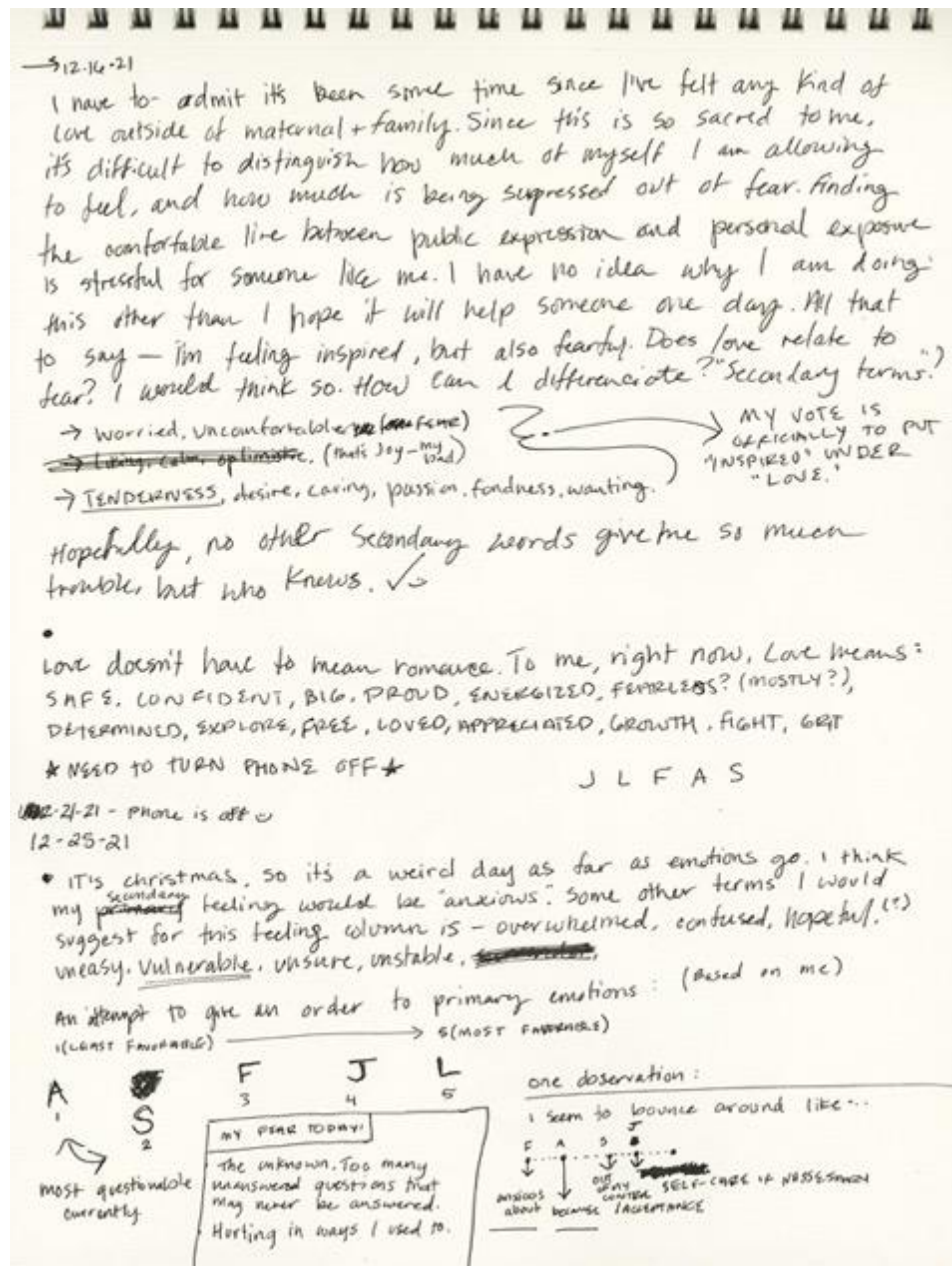 → 12.16-21
I have to admit it's been some time since I've felt any kind of
love outside of maternal + family. Since this is so sacred to me,
it's difficult to distinguish how much of myself I am allowing
to feel, and how much is being supressed out of fear. Finding
the comfortable line between public expression and personal exposure
is stressful for someone like me. I have no idea why I am doing
this other than I hope it will help someone one day. All that
to say — I'm feeling inspired, but also fearful. Does love relate to
fear? I would think so. How can I differenciate? "Secondary terms?"
→ worried, uncomfortable
→ calm, optimistic. (that's Joy - my bad)
→ TENDERNESS, desire, caring, passion, fondness, wanting.
→ MY VOTE IS
OFFICIALLY TO PUT
"INSPIRED" UNDER
"LOVE."
Hopefully, no other secondary words give me so much
trouble, but who knows. ✓
• Love doesn't have to mean romance. To me, right now, Love means:
SAFE, CONFIDENT, BIG, PROUD, ENERGIZED, FEARLESS? (MOSTLY?),
DETERMINED, EXPLORE, FREE, LOVED, APPRECIATED, GROWTH, FIGHT, GRIT
★ NEED TO TURN PHONE OFF ★
J L F A S
12-21-21 - Phone is off
12-25-21
• IT'S christmas, so it's a weird day as far as emotions go. I think
my secondary feeling would be "anxious". Some other terms I would
suggest for this feeling column is - overwhelmed, confused, hopeful, (?)
uneasy, vulnerable, unsure, unstable,
An attempt to give an order to primary emotions: (Based on me)
1 (LEAST FAVORABLE) → 5 (MOST FAVORABLE)
A S F J L
1 2 3 4 5
most questionable
currently
MY FEAR TODAY:
The unknown. Too many
unanswered questions that
may never be answered.
Hurting in ways I used to.
one observation:
I seem to bounce around like...
F A S J
anxious
about
because
out
of my
control
/ACCEPTANCE
SELF-CARE IF NESSESARY